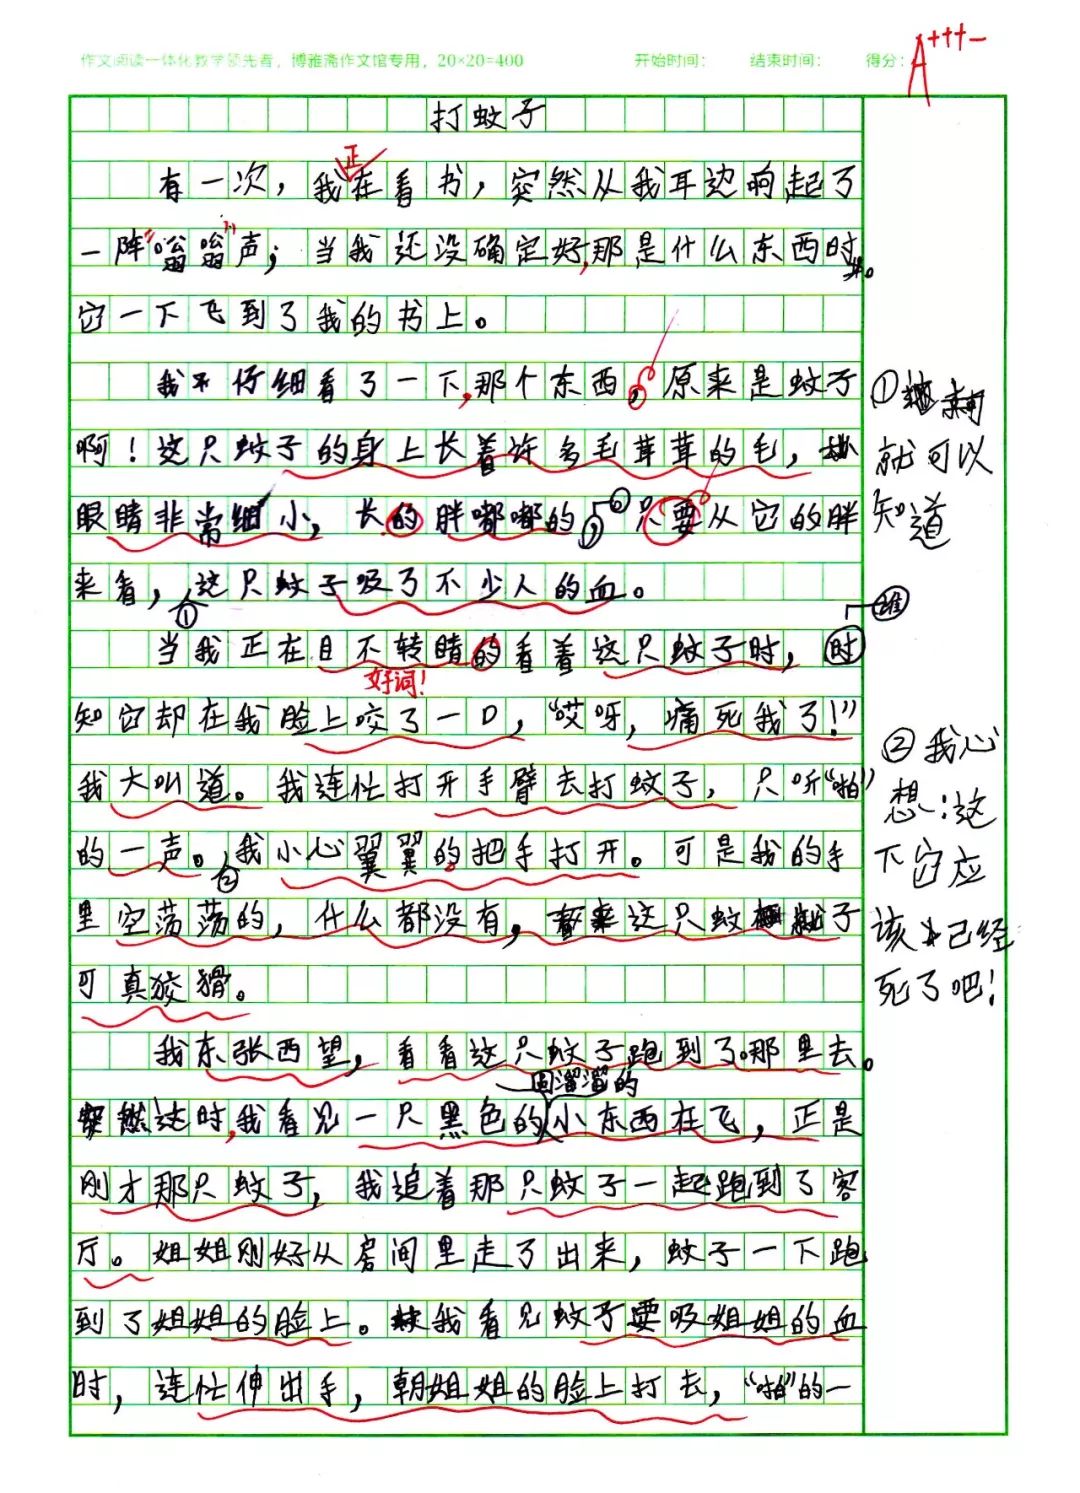 作文阅读一体化教学领先者，博雅斋作文馆专用，20×20=400 开始时间： 结束时间： 得分： A+++-
打蚊子
正
有一次，我在看书，突然从我耳边响起了
一阵“嗡嗡”声；当我还没确定好，那是什么东西时
它一下飞到了我的书上。
我仔细看了一下，那个东西，原来是蚊子
啊！这只蚊子的身上长着许多毛茸茸的毛，
眼睛非常细小，长的胖嘟嘟的，。只要从它的胖
来看，①这只蚊子吸了不少人的血。
当我正在目不转睛的看着这只蚊子时，时谁
好词！
知它却在我脸上咬了一口，“哎呀，痛死我了！”
我大叫道。我连忙打开手臂去打蚊子，只听“啪”
的一声。②我小心翼翼的把手打开。可是我的手
里空荡荡的，什么都没有，看来这只蚊子
可真狡猾。
我东张西望，看看这只蚊子跑到了那里去。
圆溜溜的
突然这时，我看见一只黑色的小东西在飞，正是
刚才那只蚊子，我追着那只蚊子一起跑到了客
厅。姐姐刚好从房间里走了出来，蚊子一下跑
到了姐姐的脸上。我看见蚊子要吸姐姐的血
时，连忙伸出手，朝姐姐的脸上打去，“啪”的一
①
就可以
知道
②我心
想：这
下它应
该已经
死了吧！